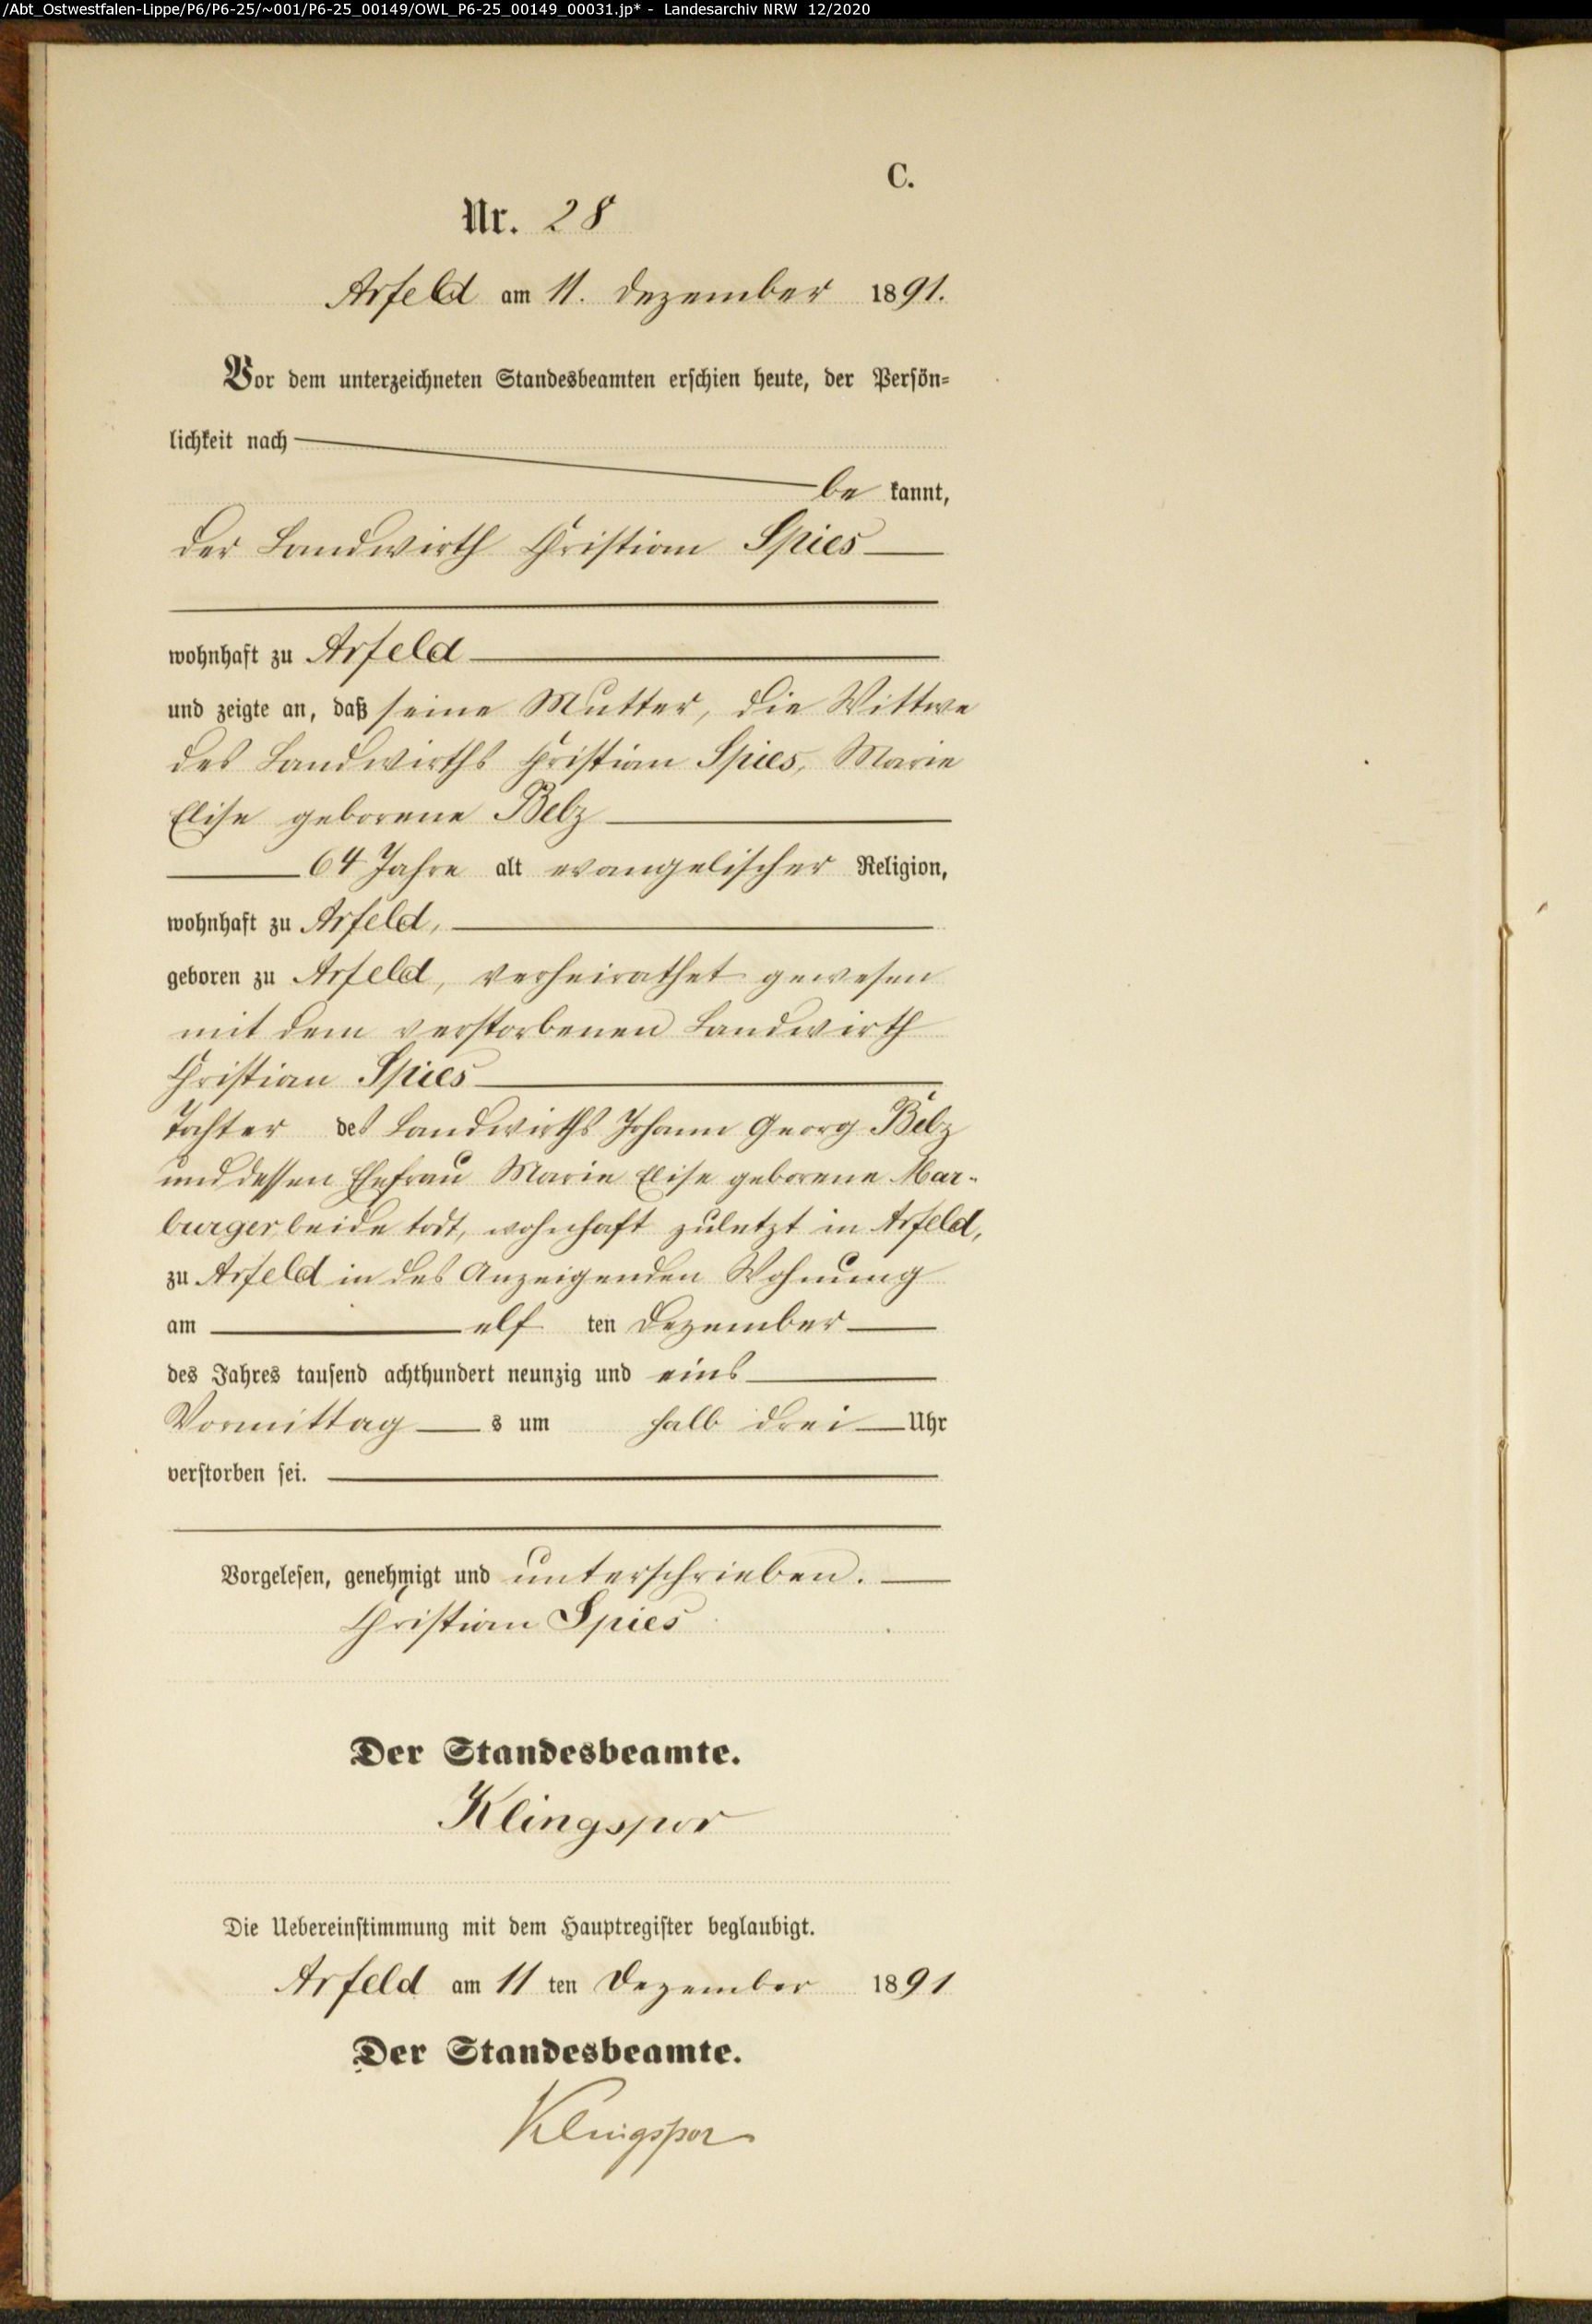 /Abt_Ostwestfalen-Lippe/P6/P6-25/~001/P6-25_00149/OWL_P6-25_00149_00031.jp* - Landesarchiv NRW 12/2020
C.
Nr. 28
Arfeld am 11. Dezember 1891.
Vor dem unterzeichneten Standesbeamten erschien heute, der Persön=
lichkeit nach
be kannt,
der Landwirth Christian Spies
wohnhaft zu Arfeld
und zeigte an, daß seine Mutter, die Wittwe
des Landwirths Christian Spies, Marie
Elise geborene Belz
64 Jahre alt evangelischer Religion,
wohnhaft zu Arfeld,
geboren zu Arfeld, verheirathet gewesen
mit dem verstorbenen Landwirth
Christian Spies
Tochter des Landwirths Johann Georg Belz
und dessen Ehefrau Marie Elise geborene Mar-
burger, beide todt, wohnhaft zuletzt in Arfeld,
zu Arfeld in des Anzeigenden Wohnung
am elf ten Dezember
des Jahres tausend achthundert neunzig und eins
Vormittag s um halb drei Uhr
verstorben sei.
Vorgelesen, genehmigt und unterschrieben.
Christian Spies
Der Standesbeamte.
Klingspor
Die Uebereinstimmung mit dem Hauptregister beglaubigt.
Arfeld am 11 ten Dezember 1891
Der Standesbeamte.
Klingspor